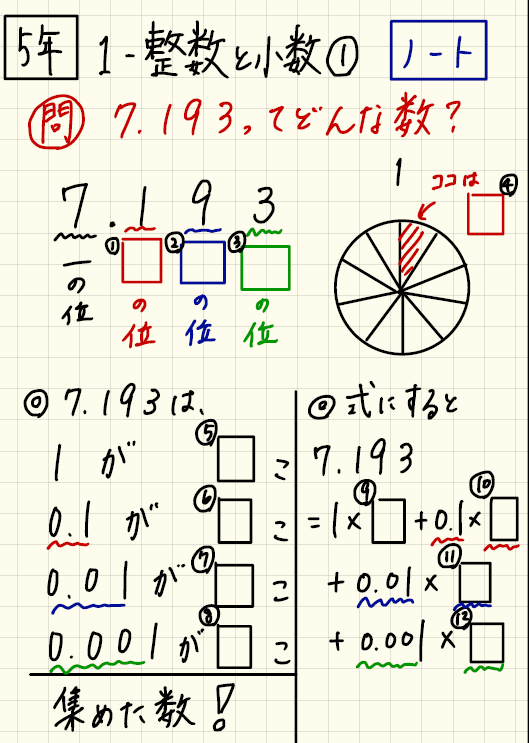 5年 1-整数と小数① ノート
問 7.193ってどんな数？
7.193
一の位 ①の位 ②の位 ③の位
1
ココは ④
◎7.193は、
1が ⑤こ
0.1が ⑥こ
0.01が ⑦こ
0.001が ⑧こ
集めた数！
◎式にすると
7.193
=1×⑨ +0.1×⑩
+0.01×⑪
+0.001×⑫